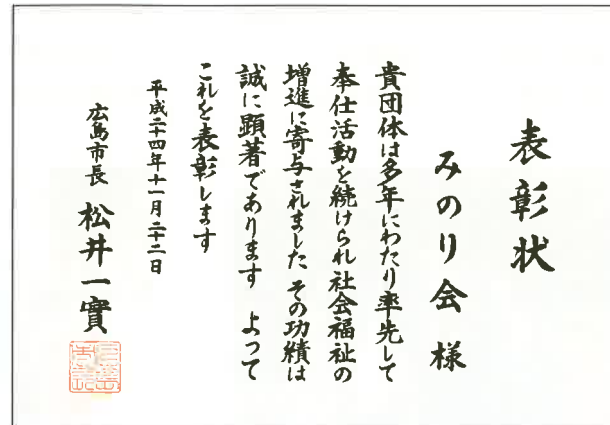 表彰状
みのり会 様
貴団体は多年にわたり率先して
奉仕活動を続けられ社会福祉の
増進に寄与されました その功績は
誠に顕著であります よって
これを表彰します
平成二十四年十一月二十二日
広島市長 松井一實